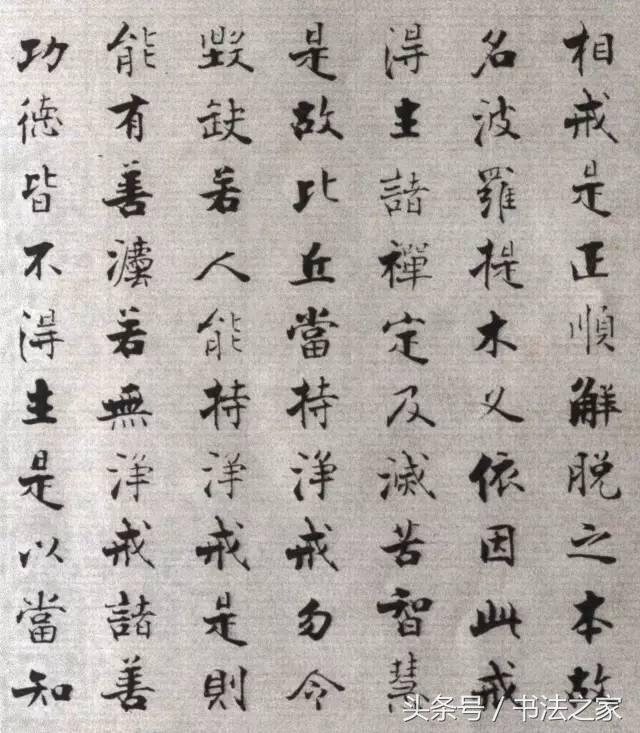 相戒是正順解脱之本故
名波羅提木义依因此戒
得生諸禪定及滅苦智慧
是故比丘當持淨戒勿令
毀缺若人能持淨戒是則
能有善瀍若無淨戒諸善
功德皆不得生是以當知
头条号/书法之家